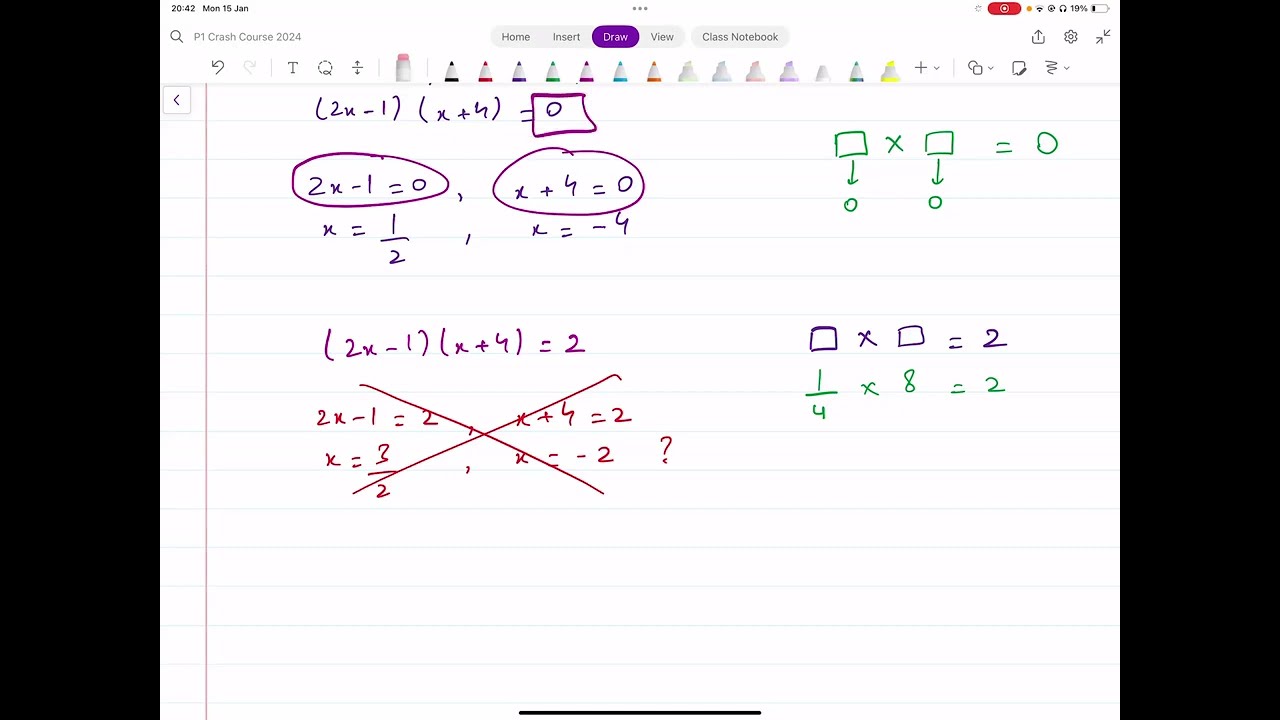 20:42 Mon 15 Jan
19%
P1 Crash Course 2024
Home Insert Draw View Class Notebook
(2x-1) (x+4) = 0
2x-1=0 , x+4=0
x = 1/2 , x = -4
□ x □ = 0
0 0
(2x-1)(x+4) = 2
2x-1 = 2 , x+4=2
x = 3/2 , x = -2 ?
□ x □ = 2
1/4 x 8 = 2